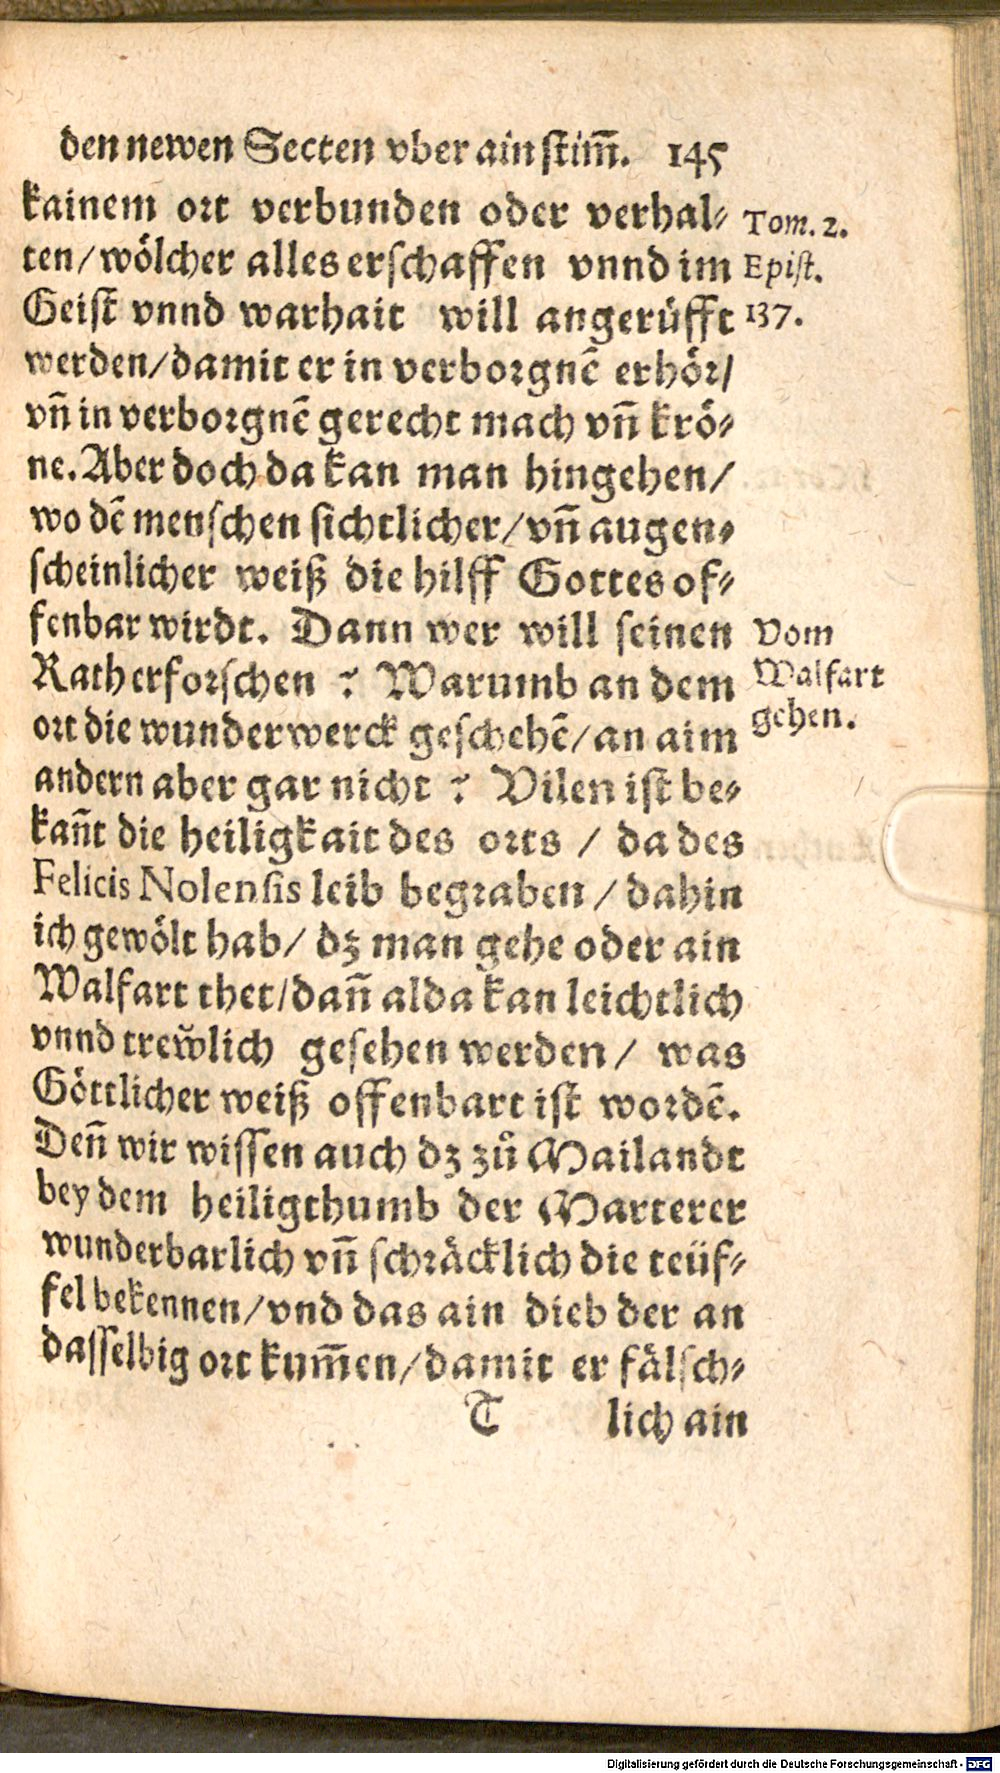 den newen Secten vber ain stim̃. 145
kainem ort verbunden oder verhal-
ten/ wölcher alles erschaffen vnnd im
Geist vnnd warhait will angerüfft
werden/ damit er in verborgnẽ erhör/
vñ in verborgnẽ gerecht mach vñ krö-
ne. Aber doch da kan man hingehen/
wo dẽ menschen sichtlicher/ vñ augen-
scheinlicher weiß die hilff Gottes of-
fenbar wirdt. Dann wer will seinen
Rath erforschen ? Warumb an dem
ort die wunderwerck geschehẽ/ an aim
andern aber gar nicht ? Vilen ist be-
kañt die heiligkait des orts / da des
Felicis Nolensis leib begraben / dahin
ich gewölt hab/ dz man gehe oder ain
Walfart thet/ dañ alda kan leichtlich
vnnd trew̆lich gesehen werden/ was
Göttlicher weiß offenbart ist wordẽ.
Deñ wir wissen auch dz zů Mailandt
bey dem heiligthumb der Marterer
wunderbarlich vñ schräcklich die teüf-
fel bekennen/ vnd das ain dieb der an
dasselbig ort kum̃en/ damit er fälsch-
T lich ain
Tom. 2.
Epist.
137.
Vom
Walfart
gehen.
Digitalisierung gefördert durch die Deutsche Forschungsgemeinschaft - DFG